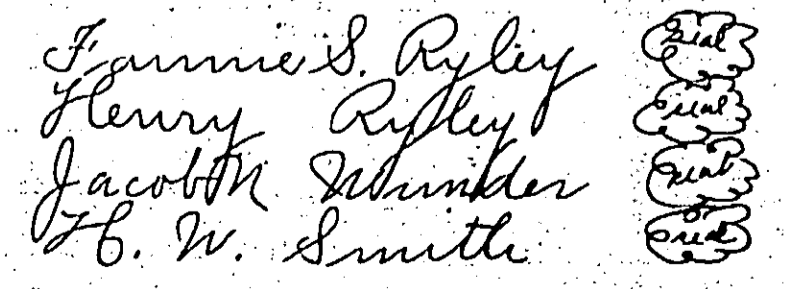 Fannie S. Ryley Seal
Henry Ryley Seal
Jacob M Wunder Seal
H. W. Smith Seal